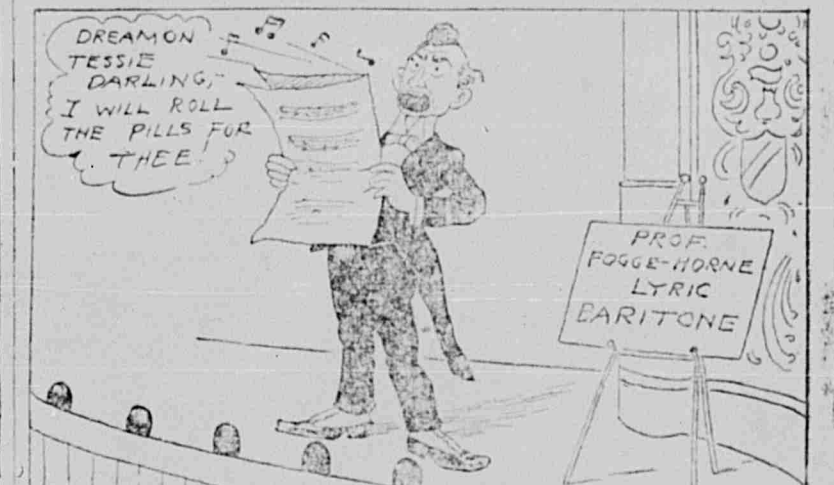 DREAM ON
TESSIE
DARLING,
I WILL ROLL
THE PILLS FOR
THEE!
PROF.
FOGGE-HORNE
LYRIC
BARITONE